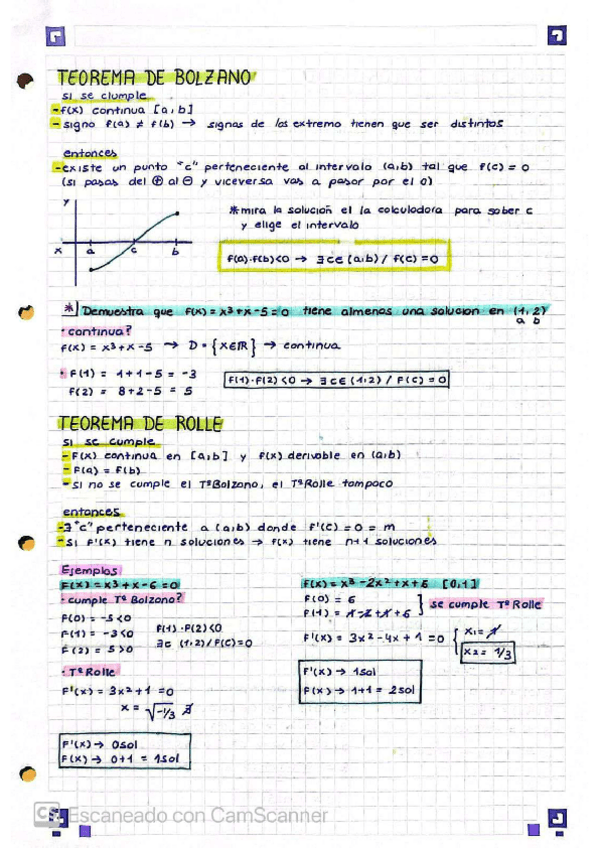 TEOREMA DE BOLZANO
si se clumple
-f(x) continua [a,b]
-signo f(a) ≠ f(b) → signas de los extremo tienen que ser distintos
entonces
-existe un punto "c" perteneciente al intervalo (a,b) tal que f(c) = 0
(si pasas del ⊕ al ⊖ y viceversa vas a pasar por el 0)
y
x a c b
*mira la solución el la calculadora para saber c
y elige el intervalo
f(a)·f(b)<0 → ∃ c∈ (a,b) / f(c) = 0
* Demuestra que f(x) = x³+x-5=0 tiene almenos una solucion en (1,2)
a b
· continua?
f(x) = x³+x-5 → D = {x∈ℝ} → continua
· F(1) = 1+1-5 = -3
F(2) = 8+2-5 = 5
F(1)·F(2) <0 → ∃ c∈ (1,2) / F(c) = 0
TEOREMA DE ROLLE
si se cumple
- F(x) continua en [a,b] y f(x) derivable en (a,b)
- F(a) = F(b)
-si no se cumple el TªBolzano, el TªRolle tampoco
entonces
-∃ "c" perteneciente a (a,b) donde F'(c) = 0 = m
-Si F'(x) tiene n soluciones → f(x) tiene n+1 soluciones
Ejemplos
F(x) = x³+x-6=0
· cumple Tª Bolzano?
F(0) = -5 <0
F(1) = -3<0
F(2) = 5 >0
F(1)·F(2)<0
∃c (1,2)/F(c)=0
· TªRolle
F'(x) = 3x²+1 =0
x = √-1/3 ∄
F'(x) → 0sol
F(x) → 0+1 = 1sol
F(x) = x³-2x²+x+6 [0,1]
F(0) = 6
F(1) = 1-2+1+6
se cumple TªRolle
F'(x) = 3x²-4x+1 =0
x₁= 1
x₂ = 1/3
F'(x) → 1sol
F(x) → 1+1 = 2sol
CS Escaneado con CamScanner